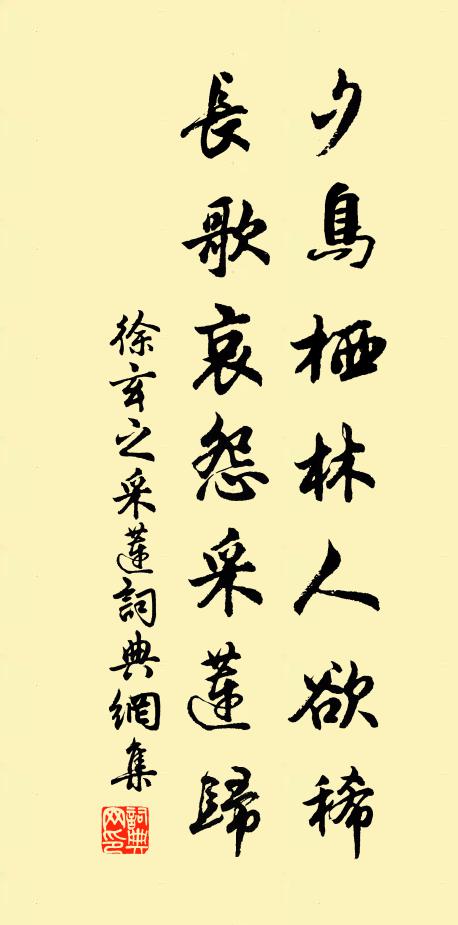 夕鳥栖林人欲稀
長歌哀怨采蓮歸
徐玄之采蓮詞典網集
詞典網印